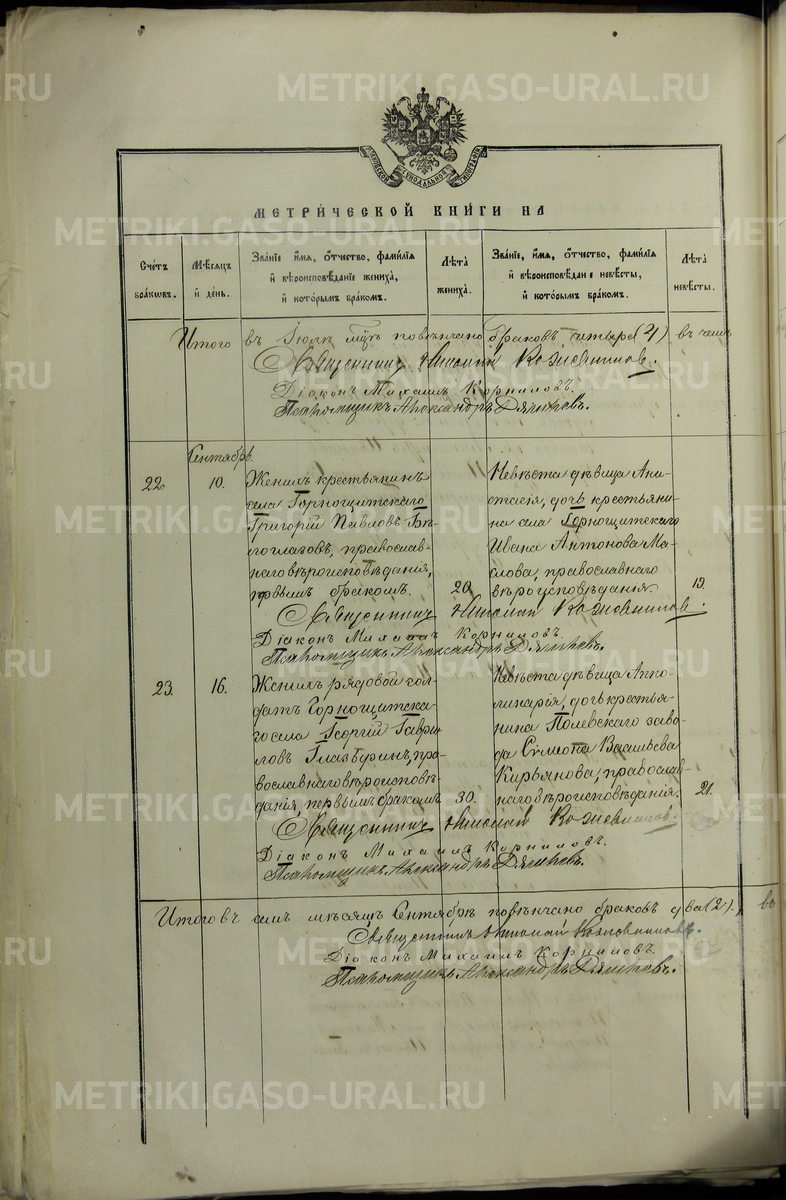 METRIKI.GASO-URAL.RU
МОСКОВСКОЙ СѴНОДАЛЬНОЙ ТИПОГРАФІИ
МЕТРИ́ЧЕСКОЙ КНИ́ГИ НА
Сче́тъ бра́ковъ.
Мѣ́сяцъ и де́нь.
Зва́ніе и́мя, о́тчество, фами́лія и вѣроисповѣ́даніе жениха̀, и кото́рымъ бра́комъ.
Лѣ́та жениха̀.
Зва́ніе, и́мя, о́тчество, фами́лія и вѣроисповѣ́дан е невѣ́сты, и кото́рымъ бра́комъ.
Лѣ́та невѣ́сты.
Итого въ Іюлѣ мцѣ повѣнчано браковъ четыре (4) въ чемъ
Священникъ Николай Кожевниковъ.
Діаконъ Михаилъ Корниловъ.
Псаломщикъ Александръ
Сентябрь
22. 10.
Женихъ крестьянинъ
села Горнощитскаго
Григорій Павловъ Бѣ
логлазовъ, православ-
наго вѣроисповѣданія,
первымъ бракомъ.
20.
Невѣста дѣвица Ана-
стасія, дочь крестьяни-
на села Горнощитскаго
Ивана Антонова Ма-
слова, православнаго
вѣроисповѣданія.
19.
Священникъ Николай Кожевниковъ.
Діаконъ Михаилъ Корниловъ.
Псаломщикъ Александръ
23. 16.
Женихъ рядовой сол-
датъ Горнощитска-
го села Георгій Гаври-
ловъ Глазѣринъ, пра-
вославнаго вѣроисповѣ
данія, первымъ бракомъ
30.
Невѣста дѣвица Апол-
линарія, дочь крестья-
нина Полевскаго заво-
да Симеона Васильева
Кирьянова, православ-
наго вѣроисповѣданія.
21.
Священникъ Николай Кожевниковъ.
Діаконъ Михаилъ Корниловъ.
Псаломщикъ Александръ
Итого въ семъ мѣсяцѣ Сентябрѣ повѣнчано браковъ два (2). въ
Священникъ Николай Кожевниковъ.
Діаконъ Михаилъ Корниловъ.
Псаломщикъ Александръ